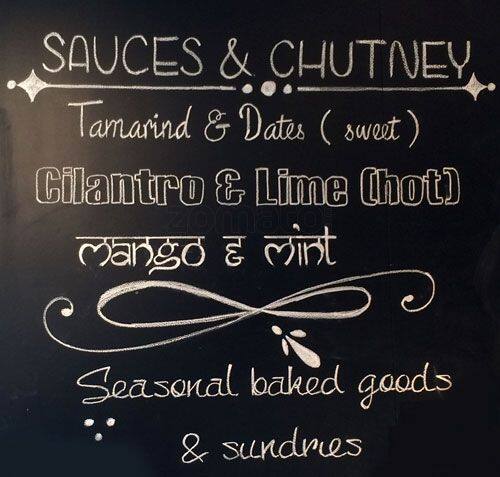 SAUCES & CHUTNEY
Tamarind & Dates ( sweet )
Cilantro & Lime (hot)
zomato
mango & mint
Seasonal baked goods
& sundries